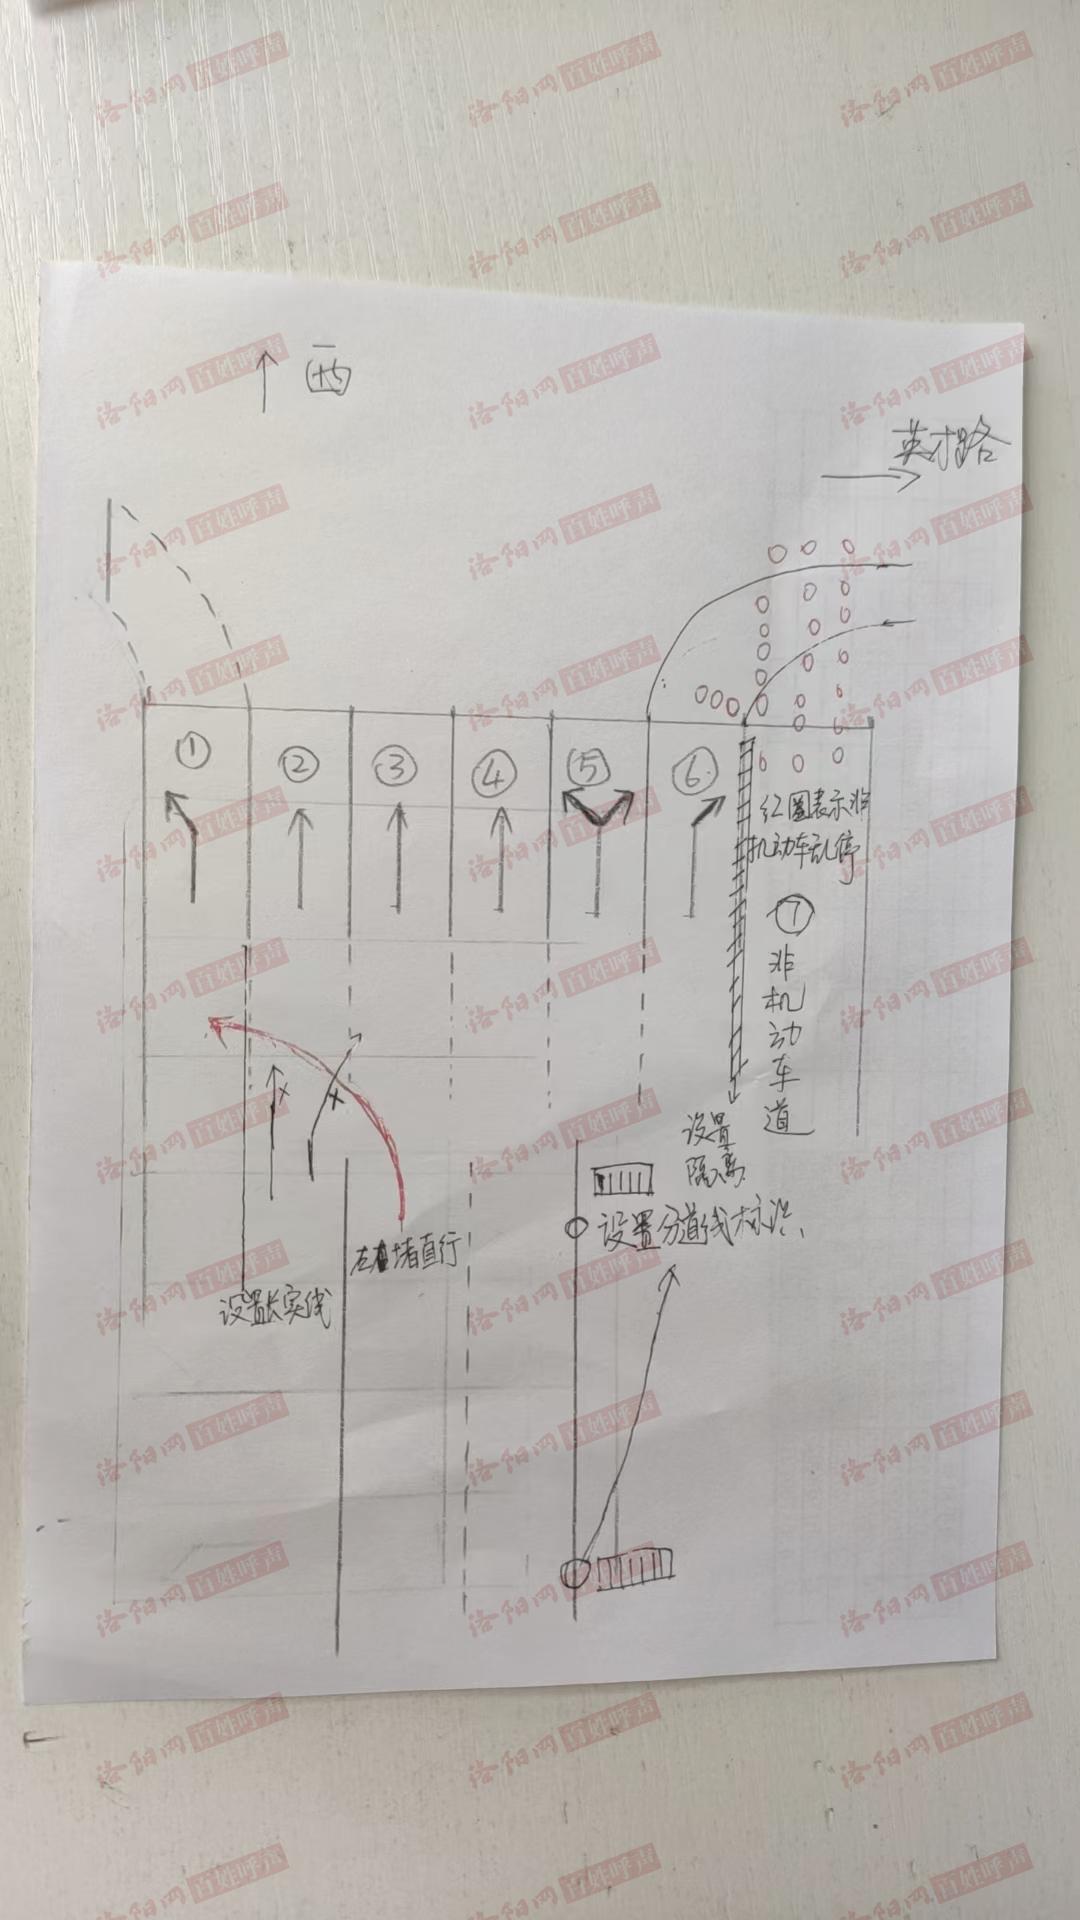 西
英才路
①
②
③
④
⑤
⑥
红圈表示非
机动车乱停
⑦
非
机
动
车
道
设置
隔离
设置分道线标识
堵直行
设置长实线
洛阳网 百姓呼声